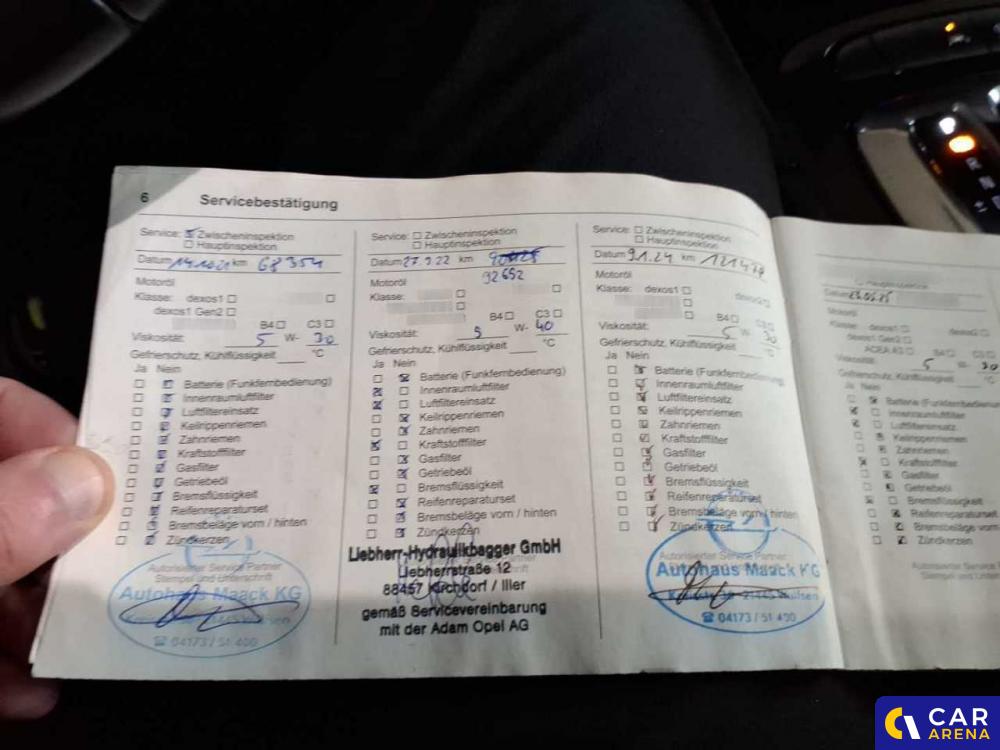 6
Servicebestätigung
Service: ☒ Zwischeninspektion
☐ Hauptinspektion
Datum 14.10.21 km 68354
Motoröl
Klasse: dexos1 ☐
dexos1 Gen2 ☐
B4 ☐ C3 ☐
Viskosität: 5 W- 30
Gefrierschutz, Kühlflüssigkeit °C
Ja Nein
Batterie (Funkfernbedienung)
Innenraumluftfilter
Luftfiltereinsatz
Keilrippenriemen
Zahnriemen
Kraftstofffilter
Gasfilter
Getriebeöl
Bremsflüssigkeit
Reifenreparaturset
Bremsbeläge vorn / hinten
Zündkerzen
Autorisierter Service Partner
Stempel und Unterschrift
Autohaus Maack KG
☎ 04173 / 51 400
Service: ☐ Zwischeninspektion
☐ Hauptinspektion
Datum 27.9.22 km
92652
Motoröl
Klasse:
B4 ☐ C3 ☐
Viskosität: 5 W- 40
Gefrierschutz, Kühlflüssigkeit °C
Ja Nein
Batterie (Funkfernbedienung)
Innenraumluftfilter
Luftfiltereinsatz
Keilrippenriemen
Zahnriemen
Kraftstofffilter
Gasfilter
Getriebeöl
Bremsflüssigkeit
Reifenreparaturset
Bremsbeläge vorn / hinten
Zündkerzen
Liebherr-Hydraulikbagger GmbH
Liebherrstraße 12
88457 Kirchdorf / Iller
gemäß Servicevereinbarung
mit der Adam Opel AG
Service: ☐ Zwischeninspektion
☐ Hauptinspektion
Datum 9.1.24 km
Motoröl
Klasse: dexos1 ☐
dexos2 ☐
B4 ☐ C3 ☐
Viskosität: 5 W- 30
Gefrierschutz, Kühlflüssigkeit °C
Ja Nein
Batterie (Funkfernbedienung)
Innenraumluftfilter
Luftfiltereinsatz
Keilrippenriemen
Zahnriemen
Kraftstofffilter
Gasfilter
Getriebeöl
Bremsflüssigkeit
Reifenreparaturset
Bremsbeläge vorn / hinten
Zündkerzen
Autorisierter Service Partner
Autohaus Maack KG
☎ 04173 / 51 400
Hauptinspektion
Datum
Motoröl
Klasse: dexos1 ☐ dexos2 ☐
dexos1 Gen2 ☐
ACEA A3 ☐ B4 ☐ C3 ☐
Viskosität: 5 W- 30
Gefrierschutz, Kühlflüssigkeit °C
Ja Nein
Batterie (Funkfernbedienung)
Innenraumluftfilter
Luftfiltereinsatz
Keilrippenriemen
Zahnriemen
Kraftstofffilter
Gasfilter
Getriebeöl
Bremsflüssigkeit
Reifenreparaturset
Bremsbeläge vorn
Zündkerzen
Autorisierter Service
Stempel und
CAR
ARENA